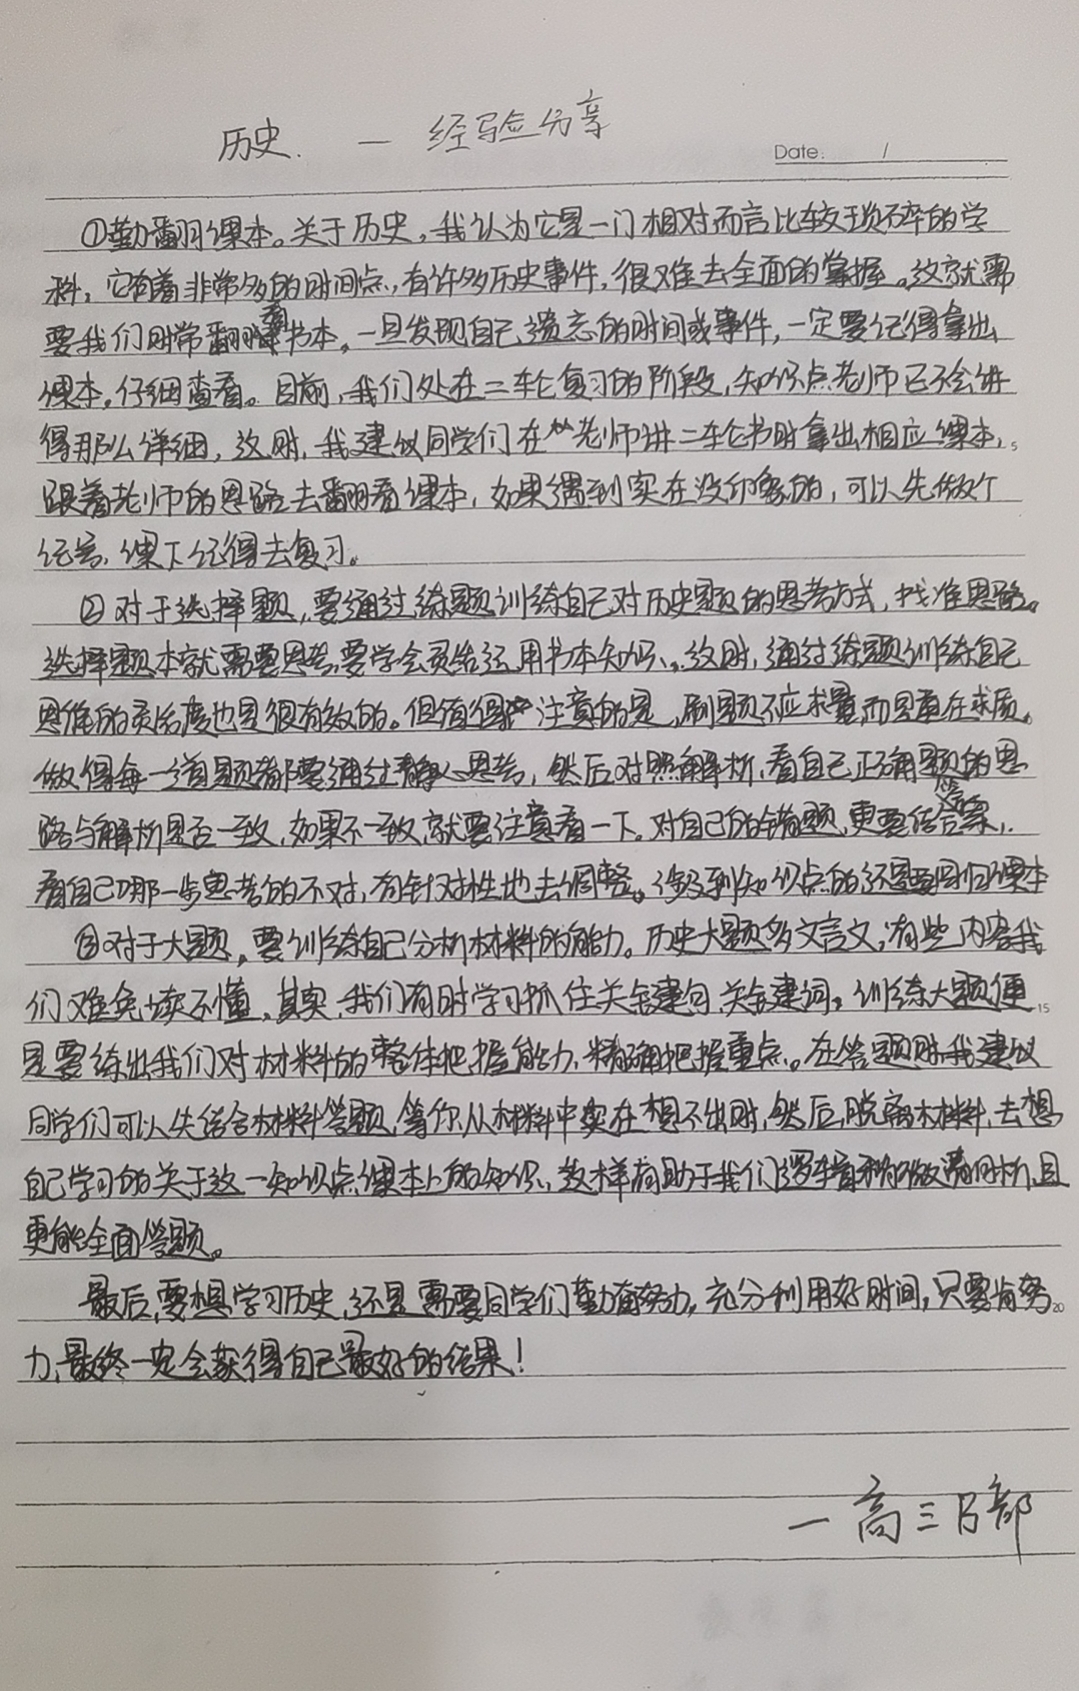 历史. — 经验分享
Date: /
①勤翻课本。关于历史,我认为它是一门相对而言比较琐碎的学
科,它有着非常多的时间点,有许多历史事件,很难去全面的掌握。这就需
要我们时常翻看书本,一旦发现自己遗忘的时间或事件,一定要记得拿出
课本,仔细查看。目前,我们处在二轮复习的阶段,知识点老师已不会讲
得那么详细,这时,我建议同学们在老师讲二轮书时拿出相应课本, 5
跟着老师的思路去翻看课本,如果遇到实在没印象的,可以先做个
记号,课下记得去复习。
②对于选择题,要通过练题训练自己对历史题的思考方式,找准思路。
选择题本就需要思考,要学会灵活运用书本知识。这时,通过练题训练自己
思维的灵活度也是很有效的。但值得注意的是,刷题不应求量,而是重在求质。
做得每一道题都要通过静心思考,然后对照解析,看自己正确题的思
路与解析是否一致,如果不一致,就要注意看一下。对自己的错题,更要结合答案,
看自己哪一步思考的不对,有针对性地去调整。涉及到知识点的还是要回归课本
③对于大题,要训练自己分析材料的能力。历史大题多文言文,有些内容我
们难免读不懂,其实,我们有时学习抓住关键句,关键词。训练大题便 15
是要练出我们对材料的整体把握能力,精确把握重点。在答题时,我建议
同学们可以先结合材料答题,等你从材料中实在想不出时,然后脱离材料,去想
自己学习的关于这一知识点课本上的知识,这样有助于我们逻辑清晰,且
更能全面答题。
最后,要想学习历史,还是需要同学们勤奋努力,充分利用好时间,只要肯努 20
力,最终一定会获得自己最好的结果!
— 高三B部